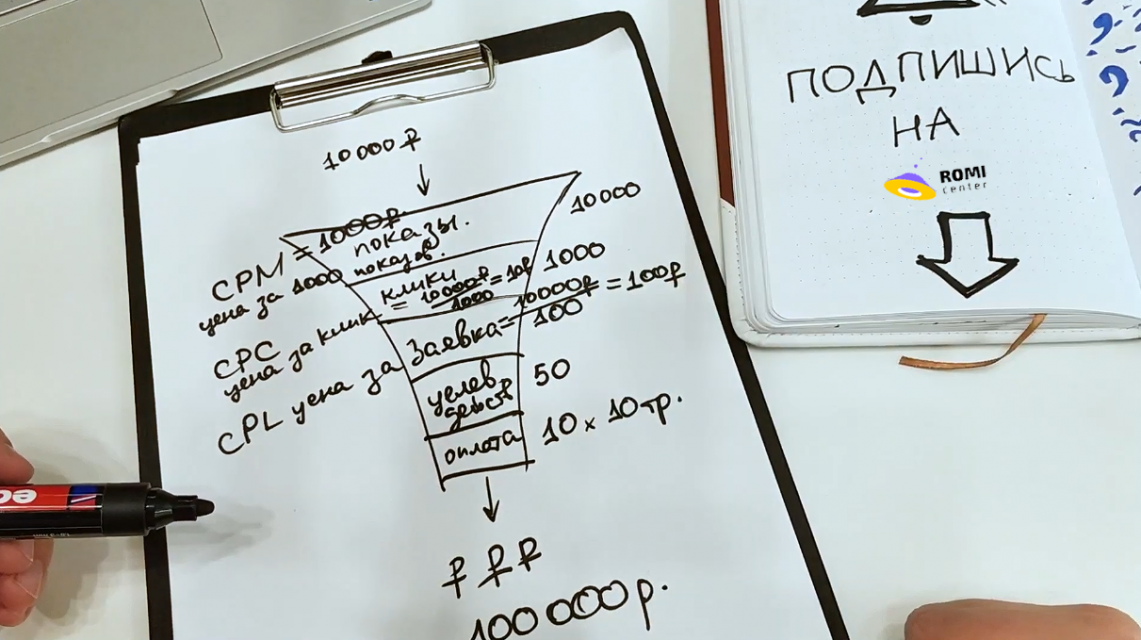 10000₽
CPM = 1000₽ показы. 10000
цена за 1000 показов.
клики 1000
CPC = 10000₽/1000 = 10₽
цена за клик
CPL цена за заявка = 10000₽/100 = 100₽
целев действ 50
оплата 10 x 10 тр.
₽ ₽ ₽
100 000 р.
ПОДПИШИСЬ
НА
ROMI
center